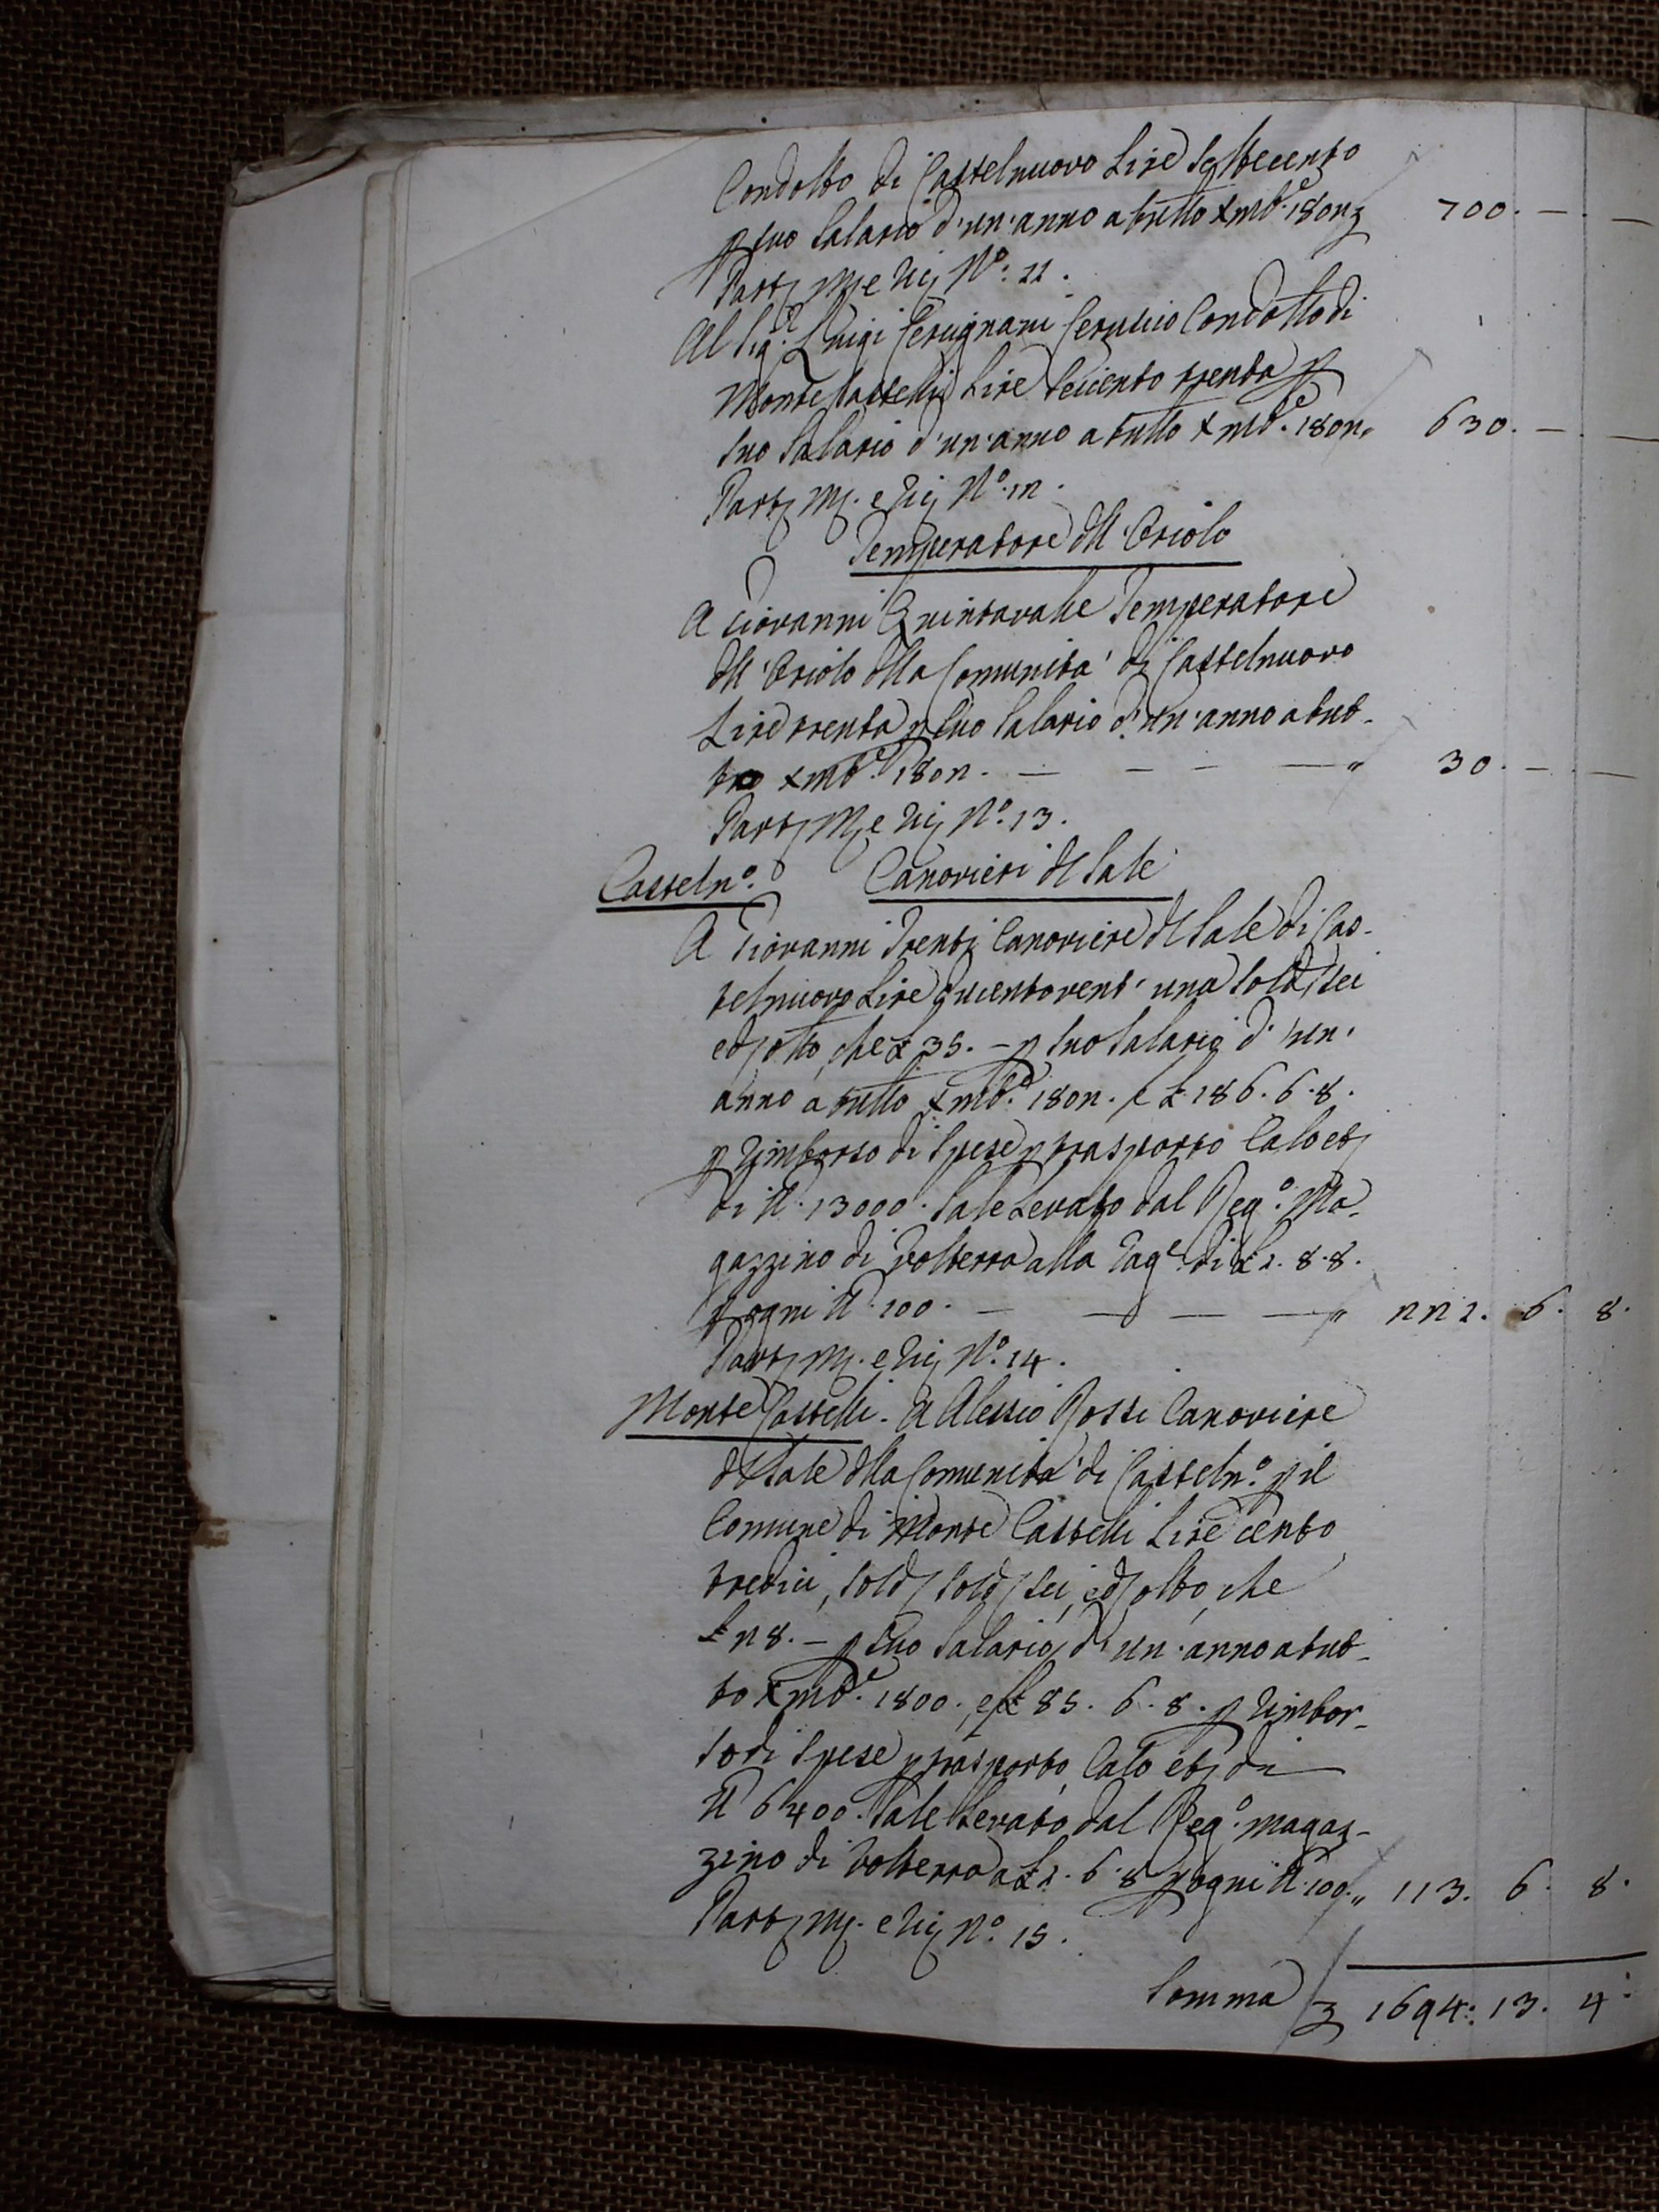 Condotto di Castelnuovo Lire Settecento
p suo Salario d'un'anno a tutto xmbᵉ 1802 700. — . —
Part. M. e Rij Nº: 11.
Al Sigʳ Luigi Cerusico Condotto di
Monte Castelli Lire Seicento trenta p
suo Salario d'un'anno a tutto xmbᵉ 1802 „ 630. — . —
Part. M. e Rij Nº. 12.
Temperatore dll'Oriolo
A Giovanni Quintavalle Temperatore
dll'Oriolo dlla Comunità di Castelnuovo
Lire trenta p suo Salario d'un'anno a tut-
to xmbᵉ 1802. — — — — „ 30. — . —
Part. M. e Rij Nº. 13.
Castelnº. Canovieri dl Sale
A Giovanni Trenti Canoviere dl Sale di Cas-
telnuovo Lire Ducentovent'una Sold. Sei
ed otto, che £ 35. — p suo Salario d'un'
anno a tutto xmbᵉ 1802. e £ 186. 6. 8.
p Rimborso di Spese p trasporto Calo et.
di ℔. 13000. Sale Levato dal Regº. Ma-
gazzino di Volterra alla Ragᵉ di £ 1. 8. 8.
p ogni ℔. 100. — — — — „ 221. 6. 8.
Part. M. e Rij Nº. 14.
Monte Castelli. A Alessio Rossi Canoviere
dl Sale dlla Comunità di Castelnº. p il
Comune di Monte Castelli Lire cento
tredici, Sold. Sold. Sei, ed otto, che
£ 28. — p suo Salario, d'un'anno a tut-
to xmbᵉ. 1802. e £ 85. 6. 8. p Rimbor-
so di Spese p trasporto, Calo et. di
℔ 6400. Sale Levato dal Regº. Magaz-
zino di Volterra a £ 1. 6. 8 p ogni ℔. 100. „ 113. 6. 8.
Part. M. e Rij Nº. 15.
Somma 1694: 13. 4.